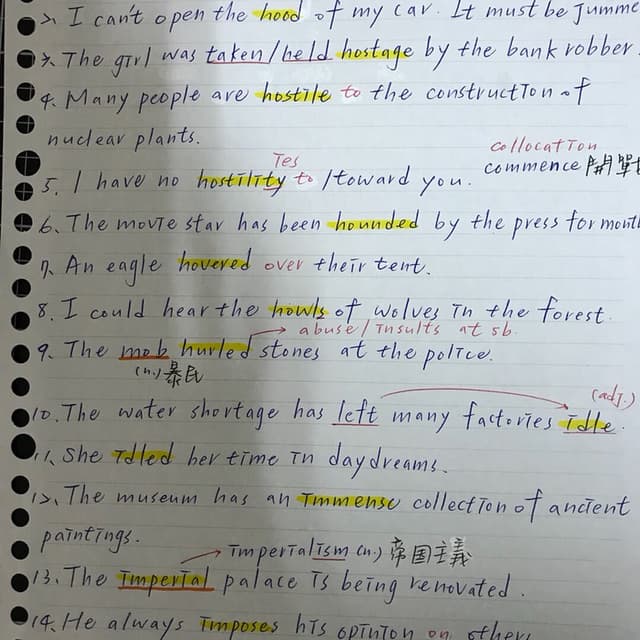 2. I can't open the hood of my car. It must be jumme
3. The girl was taken/held hostage by the bank robber.
4. Many people are hostile to the construction of
nuclear plants.
collocation
ies
commence 開戰
5. I have no hostility to/toward you.
6. The movie star has been hounded by the press for month
7. An eagle hovered over their tent.
8. I could hear the howls of wolves in the forest.
abuse/insults at sb.
9. The mob hurled stones at the police.
(n.) 暴民
(adj.)
10. The water shortage has left many factories idle.
11. She idled her time in daydreams.
12. The museum has an immense collection of ancient
paintings.
imperialism (n.) 帝国主義
13. The imperial palace is being renovated.
14. He always imposes his opinion on others